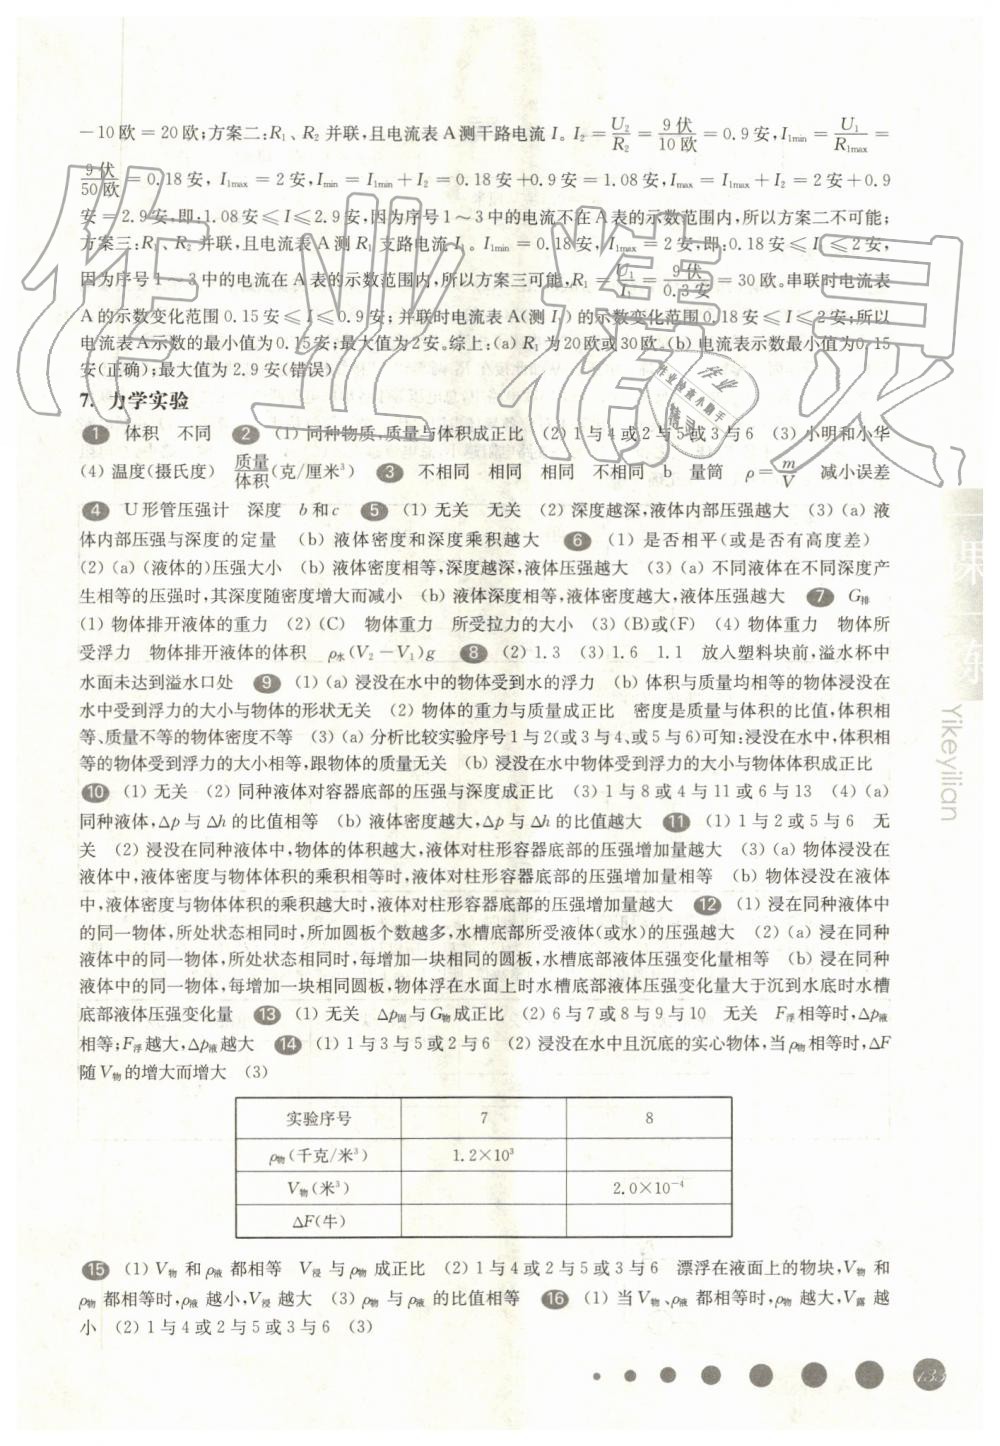 －10欧＝20欧；方案二：R₁、R₂ 并联，且电流表 A 测干路电流 I。I₂＝U₂/R₂＝9伏/10欧＝0.9安，I₁min＝U₁/R₁max＝
9伏/50欧＝0.18安，I₁max＝2安，Imin＝I₁min＋I₂＝0.18安＋0.9安＝1.08安，Imax＝I₁max＋I₂＝2安＋0.9
安＝2.9安，即：1.08安≤I≤2.9安，因为序号1～3中的电流不在A表的示数范围内，所以方案二不可能；
方案三：R₁、R₂ 并联，且电流表 A 测 R₁ 支路电流 I₁。I₁min＝0.18安，I₁max＝2安，即：0.18安≤I≤2安，
因为序号1～3中的电流在A表的示数范围内，所以方案三可能，R₁＝U₁/I₁＝9伏/0.3安＝30欧。串联时电流表
A的示数变化范围0.15安≤I≤0.9安；并联时电流表A(测I₁)的示数变化范围0.18安≤I≤2安；所以
电流表A示数的最小值为0.15安；最大值为2安。综上：(a) R₁ 为20欧或30欧。(b) 电流表示数最小值为0.15
安(正确)；最大值为2.9安(错误)
7. 力学实验
1 体积 不同 2 (1) 同种物质，质量与体积成正比 (2) 1与4或2与5或3与6 (3) 小明和小华
(4) 温度(摄氏度) 质量/体积(克/厘米³) 3 不相同 相同 相同 不相同 b 量筒 ρ＝m/V 减小误差
4 U形管压强计 深度 b和c 5 (1) 无关 无关 (2) 深度越深，液体内部压强越大 (3) (a) 液
体内部压强与深度的定量 (b) 液体密度和深度乘积越大 6 (1) 是否相平(或是否有高度差)
(2) (a) (液体的)压强大小 (b) 液体密度相等，深度越深，液体压强越大 (3) (a) 不同液体在不同深度产
生相等的压强时，其深度随密度增大而减小 (b) 液体深度相等，液体密度越大，液体压强越大 7 G排
(1) 物体排开液体的重力 (2) (C) 物体重力 所受拉力的大小 (3) (B)或(F) (4) 物体重力 物体所
受浮力 物体排开液体的体积 ρ水(V₂－V₁)g 8 (2) 1.3 (3) 1.6 1.1 放入塑料块前，溢水杯中
水面未达到溢水口处 9 (1) (a) 浸没在水中的物体受到水的浮力 (b) 体积与质量均相等的物体浸没在
水中受到浮力的大小与物体的形状无关 (2) 物体的重力与质量成正比 密度是质量与体积的比值，体积相
等、质量不等的物体密度不等 (3) (a) 分析比较实验序号1与2(或3与4、或5与6)可知：浸没在水中，体积相
等的物体受到浮力的大小相等，跟物体的质量无关 (b) 浸没在水中物体受到浮力的大小与物体体积成正比
10 (1) 无关 (2) 同种液体对容器底部的压强与深度成正比 (3) 1与8或4与11或6与13 (4) (a)
同种液体，Δp与Δh的比值相等 (b) 液体密度越大，Δp与Δh的比值越大 11 (1) 1与2或5与6 无
关 (2) 浸没在同种液体中，物体的体积越大，液体对柱形容器底部的压强增加量越大 (3) (a) 物体浸没在
液体中，液体密度与物体体积的乘积相等时，液体对柱形容器底部的压强增加量相等 (b) 物体浸没在液体
中，液体密度与物体体积的乘积越大时，液体对柱形容器底部的压强增加量越大 12 (1) 浸在同种液体中
的同一物体，所处状态相同时，所加圆板个数越多，水槽底部所受液体(或水)的压强越大 (2) (a) 浸在同种
液体中的同一物体，所处状态相同时，每增加一块相同的圆板，水槽底部液体压强变化量相等 (b) 浸在同种
液体中的同一物体，每增加一块相同圆板，物体浮在水面上时水槽底部液体压强变化量大于沉到水底时水槽
底部液体压强变化量 13 (1) 无关 Δp固与G物成正比 (2) 6与7或8与9与10 无关 F浮相等时，Δp液
相等；F浮越大，Δp液越大 14 (1) 1与3与5或2与6 (2) 浸没在水中且沉底的实心物体，当ρ物相等时，ΔF
随V物的增大而增大 (3)
实验序号 7 8
ρ物(千克/米³) 1.2×10³
V物(米³) 2.0×10⁻⁴
ΔF(牛)
15 (1) V物 和 ρ液 都相等 V浸 与 ρ物 成正比 (2) 1与4或2与5或3与6 漂浮在液面上的物块，V物 和
ρ物 都相等时，ρ液 越小，V浸 越大 (3) ρ物 与 ρ液 的比值相等 16 (1) 当V物、ρ液 都相等时，ρ物 越大，V露 越
小 (2) 1与4或2与5或3与6 (3)
Yikeyilian
133
作业精灵